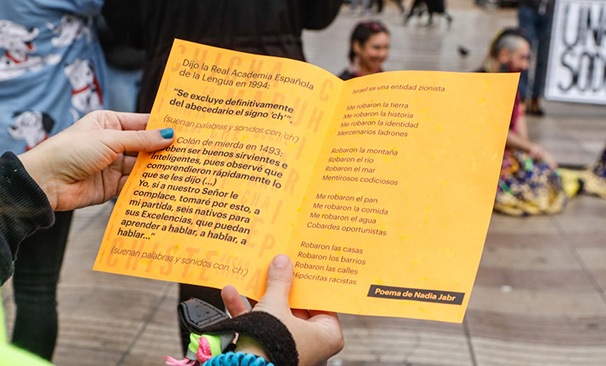 Dijo la Real Academia Española
de la Lengua en 1994:
"Se excluye definitivamente
del abecedario el signo 'ch'".
(suenan palabras y sonidos con 'ch')
Colón de mierda en 1493:
deben ser buenos sirvientes e
inteligentes, pues observé que
comprendieron rápidamente lo
que se les dijo (...)
Yo, si a nuestro Señor le
complace, tomaré por esto, a
mi partida, seis nativos para
sus Excelencias, que puedan
aprender a hablar, a hablar, a
hablar..."
(suenan palabras y sonidos con 'ch')
Israel es una entidad zionista
Me robaron la tierra
Me robaron la historia
Me robaron la identidad
Mercenarios ladrones
Robaron la montaña
Robaron el río
Robaron el mar
Mentirosos codiciosos
Me robaron el pan
Me robaron la comida
Me robaron el agua
Cobardes oportunistas
Robaron las casas
Robaron los barrios
Robaron las calles
Hipócritas racistas
Poema de Nadia Jabr